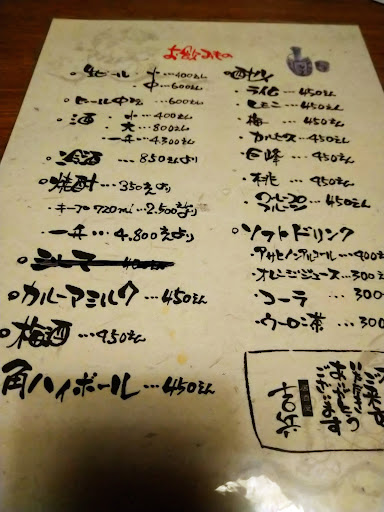 お飲みもの
・生ビール 小…400えん
中…600えん
・ビール中ビン …600えん
・酒 小…400えん
大…800えん
一升…4.300えん
・冷酒 …850えんより
・焼酎…350えんより
・キープ720ml…2.500えんより
・一升…4.800えんより
・カルーアミルク…450えん
・梅酒…450えん
角ハイボール…450えん
・酎ハイ
・ライム…450えん
・レモン…450えん
・梅…450えん
・カルピス…450えん
・巨峰…450えん
・桃…450えん
・グレープフルーツ…450えん
・ソフトドリンク
・アサヒノンアルコール…400
・オレンジジュース…300え
・コーラ …300
・ウーロン茶…300